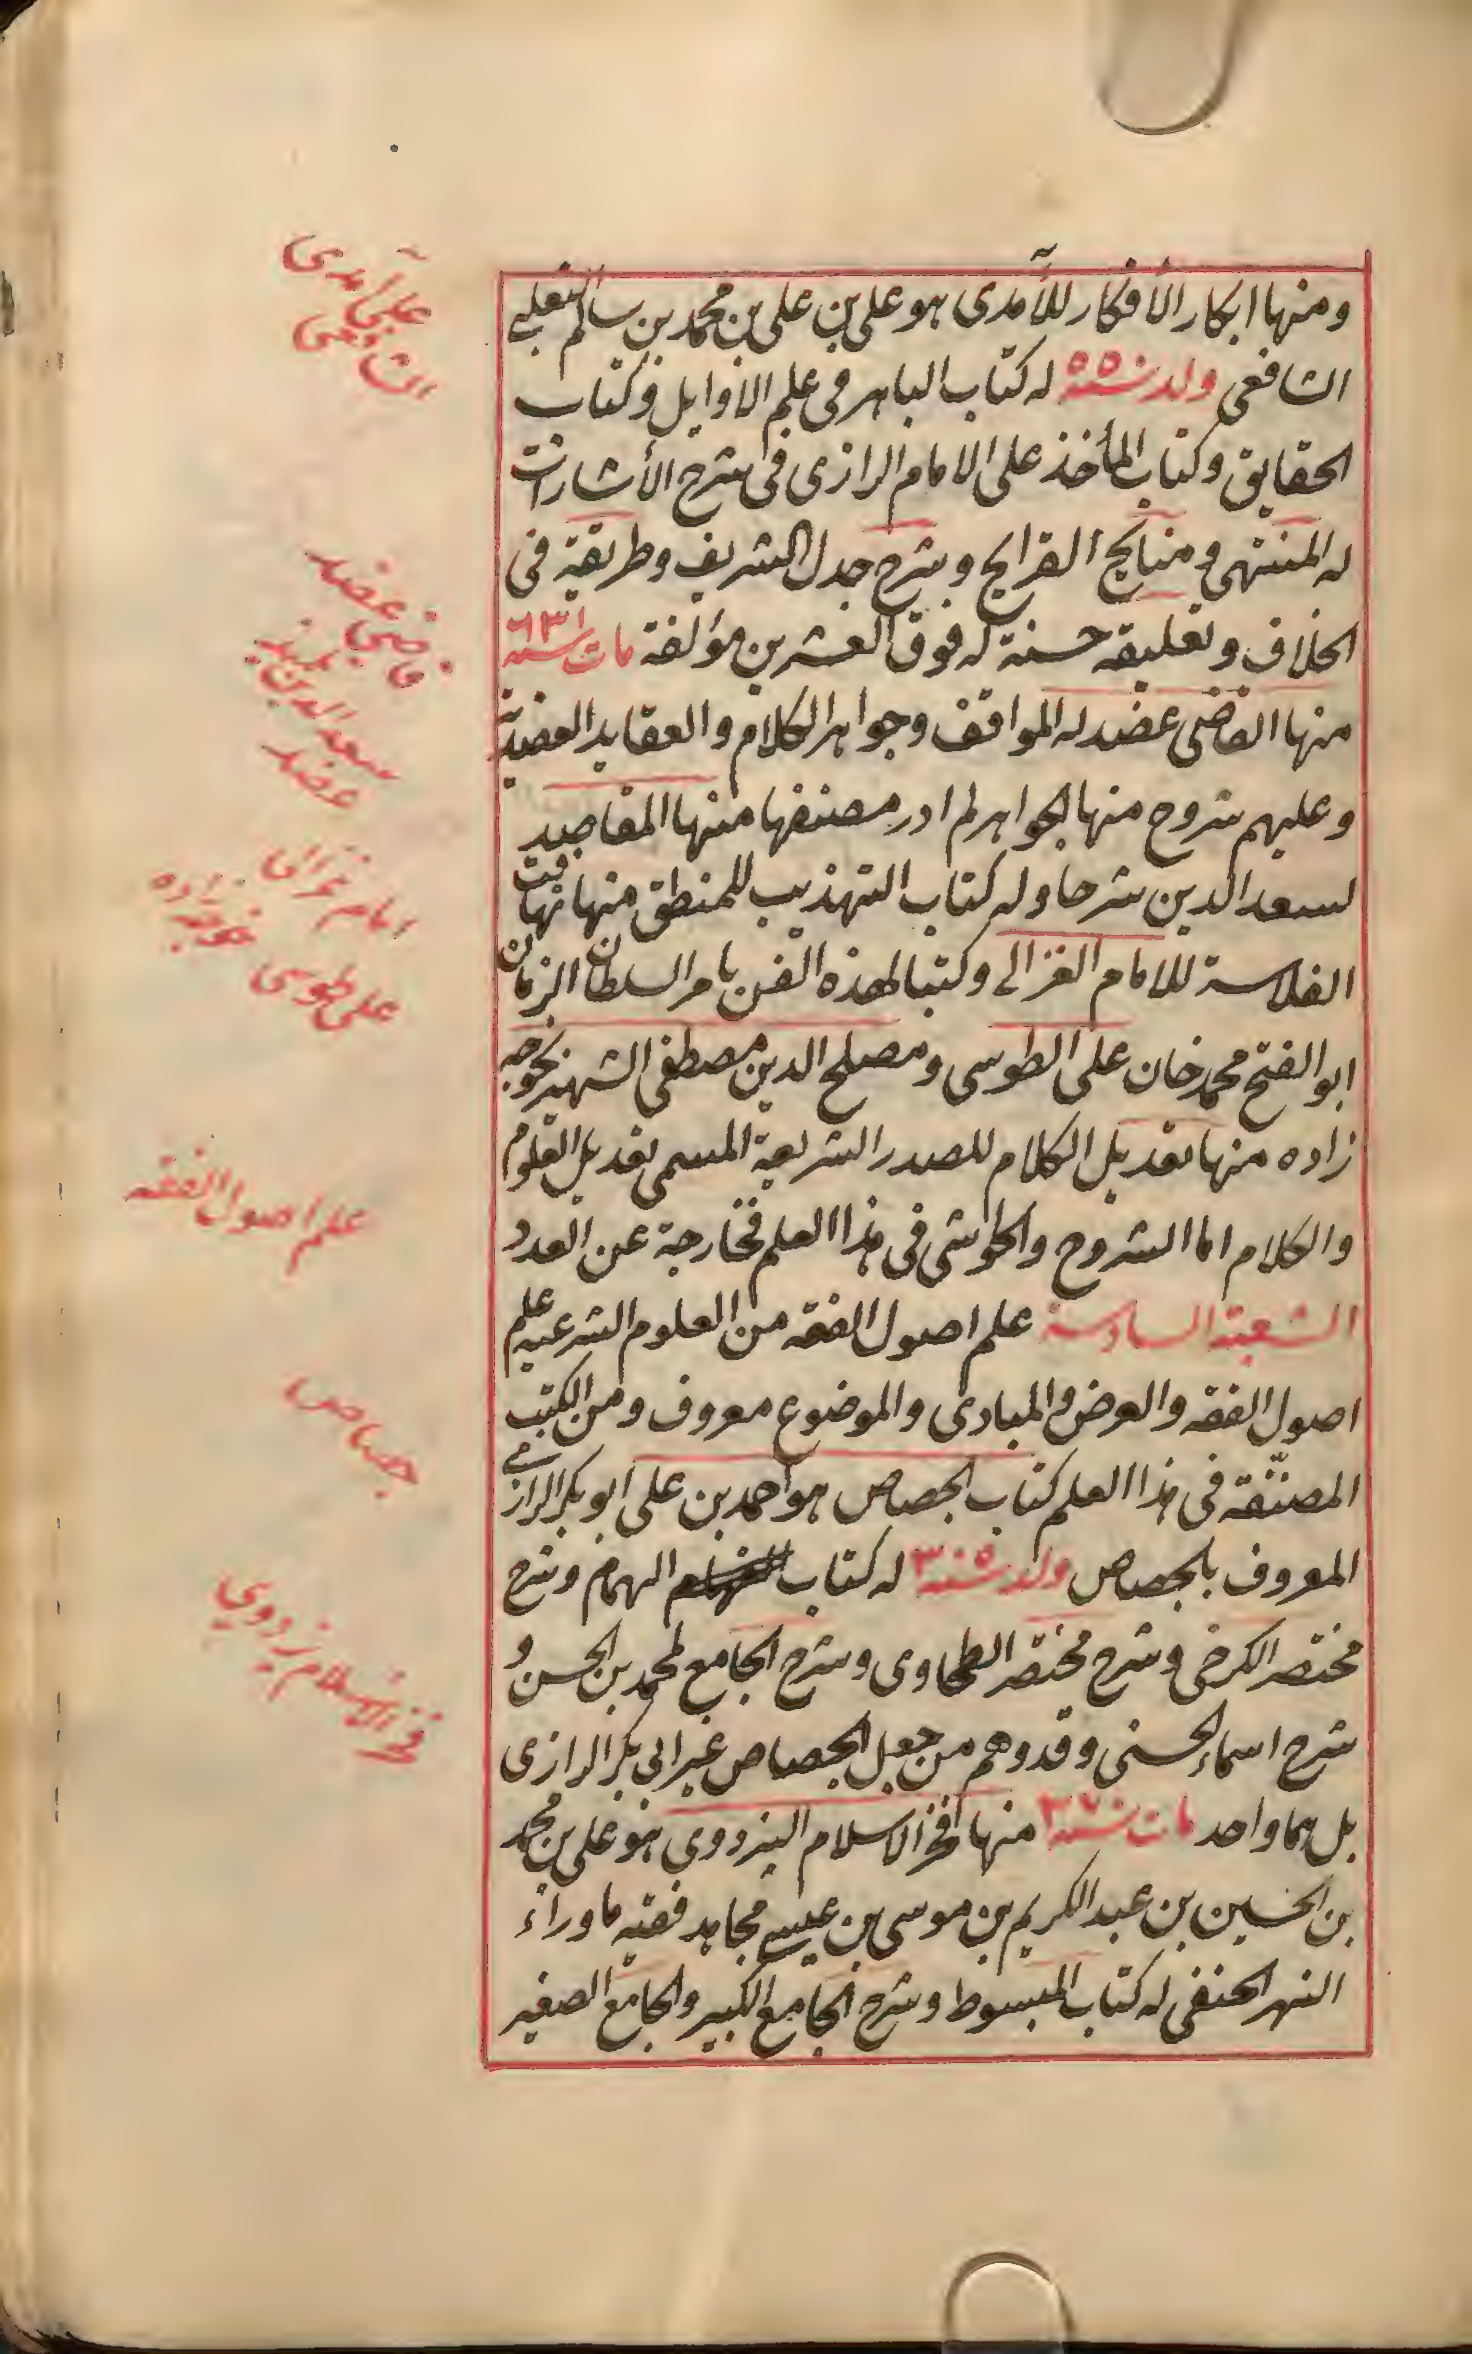 ومنها ابكار الأفكار للآمدى هو على بن على بن محمد بن سالم التغلبى
الشافعى ولد سنة ٥٥٠ له كتاب الباهر فى علم الاوايل وكتاب
الحقايق وكتاب المأخذ على الامام الرازى فى شرح الأشارات
له المنتهى و منايح القرايح وشرح جدل الشريف وطريقة فى
الخلاف وتعليقه حسنة له فوق العشرين مؤلفة مات سنة ٦٣١
منها القاضى عضد له المواقف وجواهر الكلام والعقايد العضدية
وعليهم شروح منها الجواهر لم ادر مصنفها منها المقاصد
لسعد الدين شرحا وله كتاب التهذيب للمنطق منها تهافت
الفلاسة للامام الغزالى وكتبا لهذه الفن بامر السلطان الزمان
ابو الفتح محمد خان على الطوسى ومصلح الدين مصطفى الشهير بخوجه
زاده منها تعديل الكلام للصدر الشريعة المسمى بتعديل العلوم
والكلام اما الشروح والحواشى فى هذا العلم فخارجة عن العدد
الشعبة السادسة علم اصول الفقه من العلوم الشرعيه علم
اصول الفقه والعرض والمبادى والموضوع معروف ومن الكتب
المصنّفة فى هذا العلم كتاب الجصاص هو احمد بن على ابو بكر الرازى
المعروف بالجصاص ولد سنة ٣٠٥ له كتاب الهمام وشرح
مختصر الكرخى وشرح مختصر الطحاوى وشرح الجامع لمحمد بن الحسن و
شرح اسماء الحسنى وقد وهم من جعل الجصاص غير ابى بكر الرازى
بل هما واحد مات سنة ٣٧٠ منها فخر الاسلام البزدوى هو على بن محمد
بن الحسين بن عبد الكريم بن موسى بن عيسى مجاهد فقيه ماوراء
النهر الحنفى له كتاب المبسوط وشرح الجامع الكبير والجامع الصغير
على آمدى
الشافعى
قاضى عضد
سعد الدين تلميذ
عضد
امام غزالى
خوجه زاده
على طوسى
علم اصول الفقه
جصاص
فخر الاسلام بزدوى